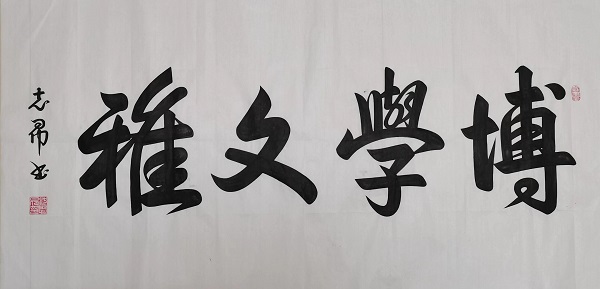 博學文雅
志昂书